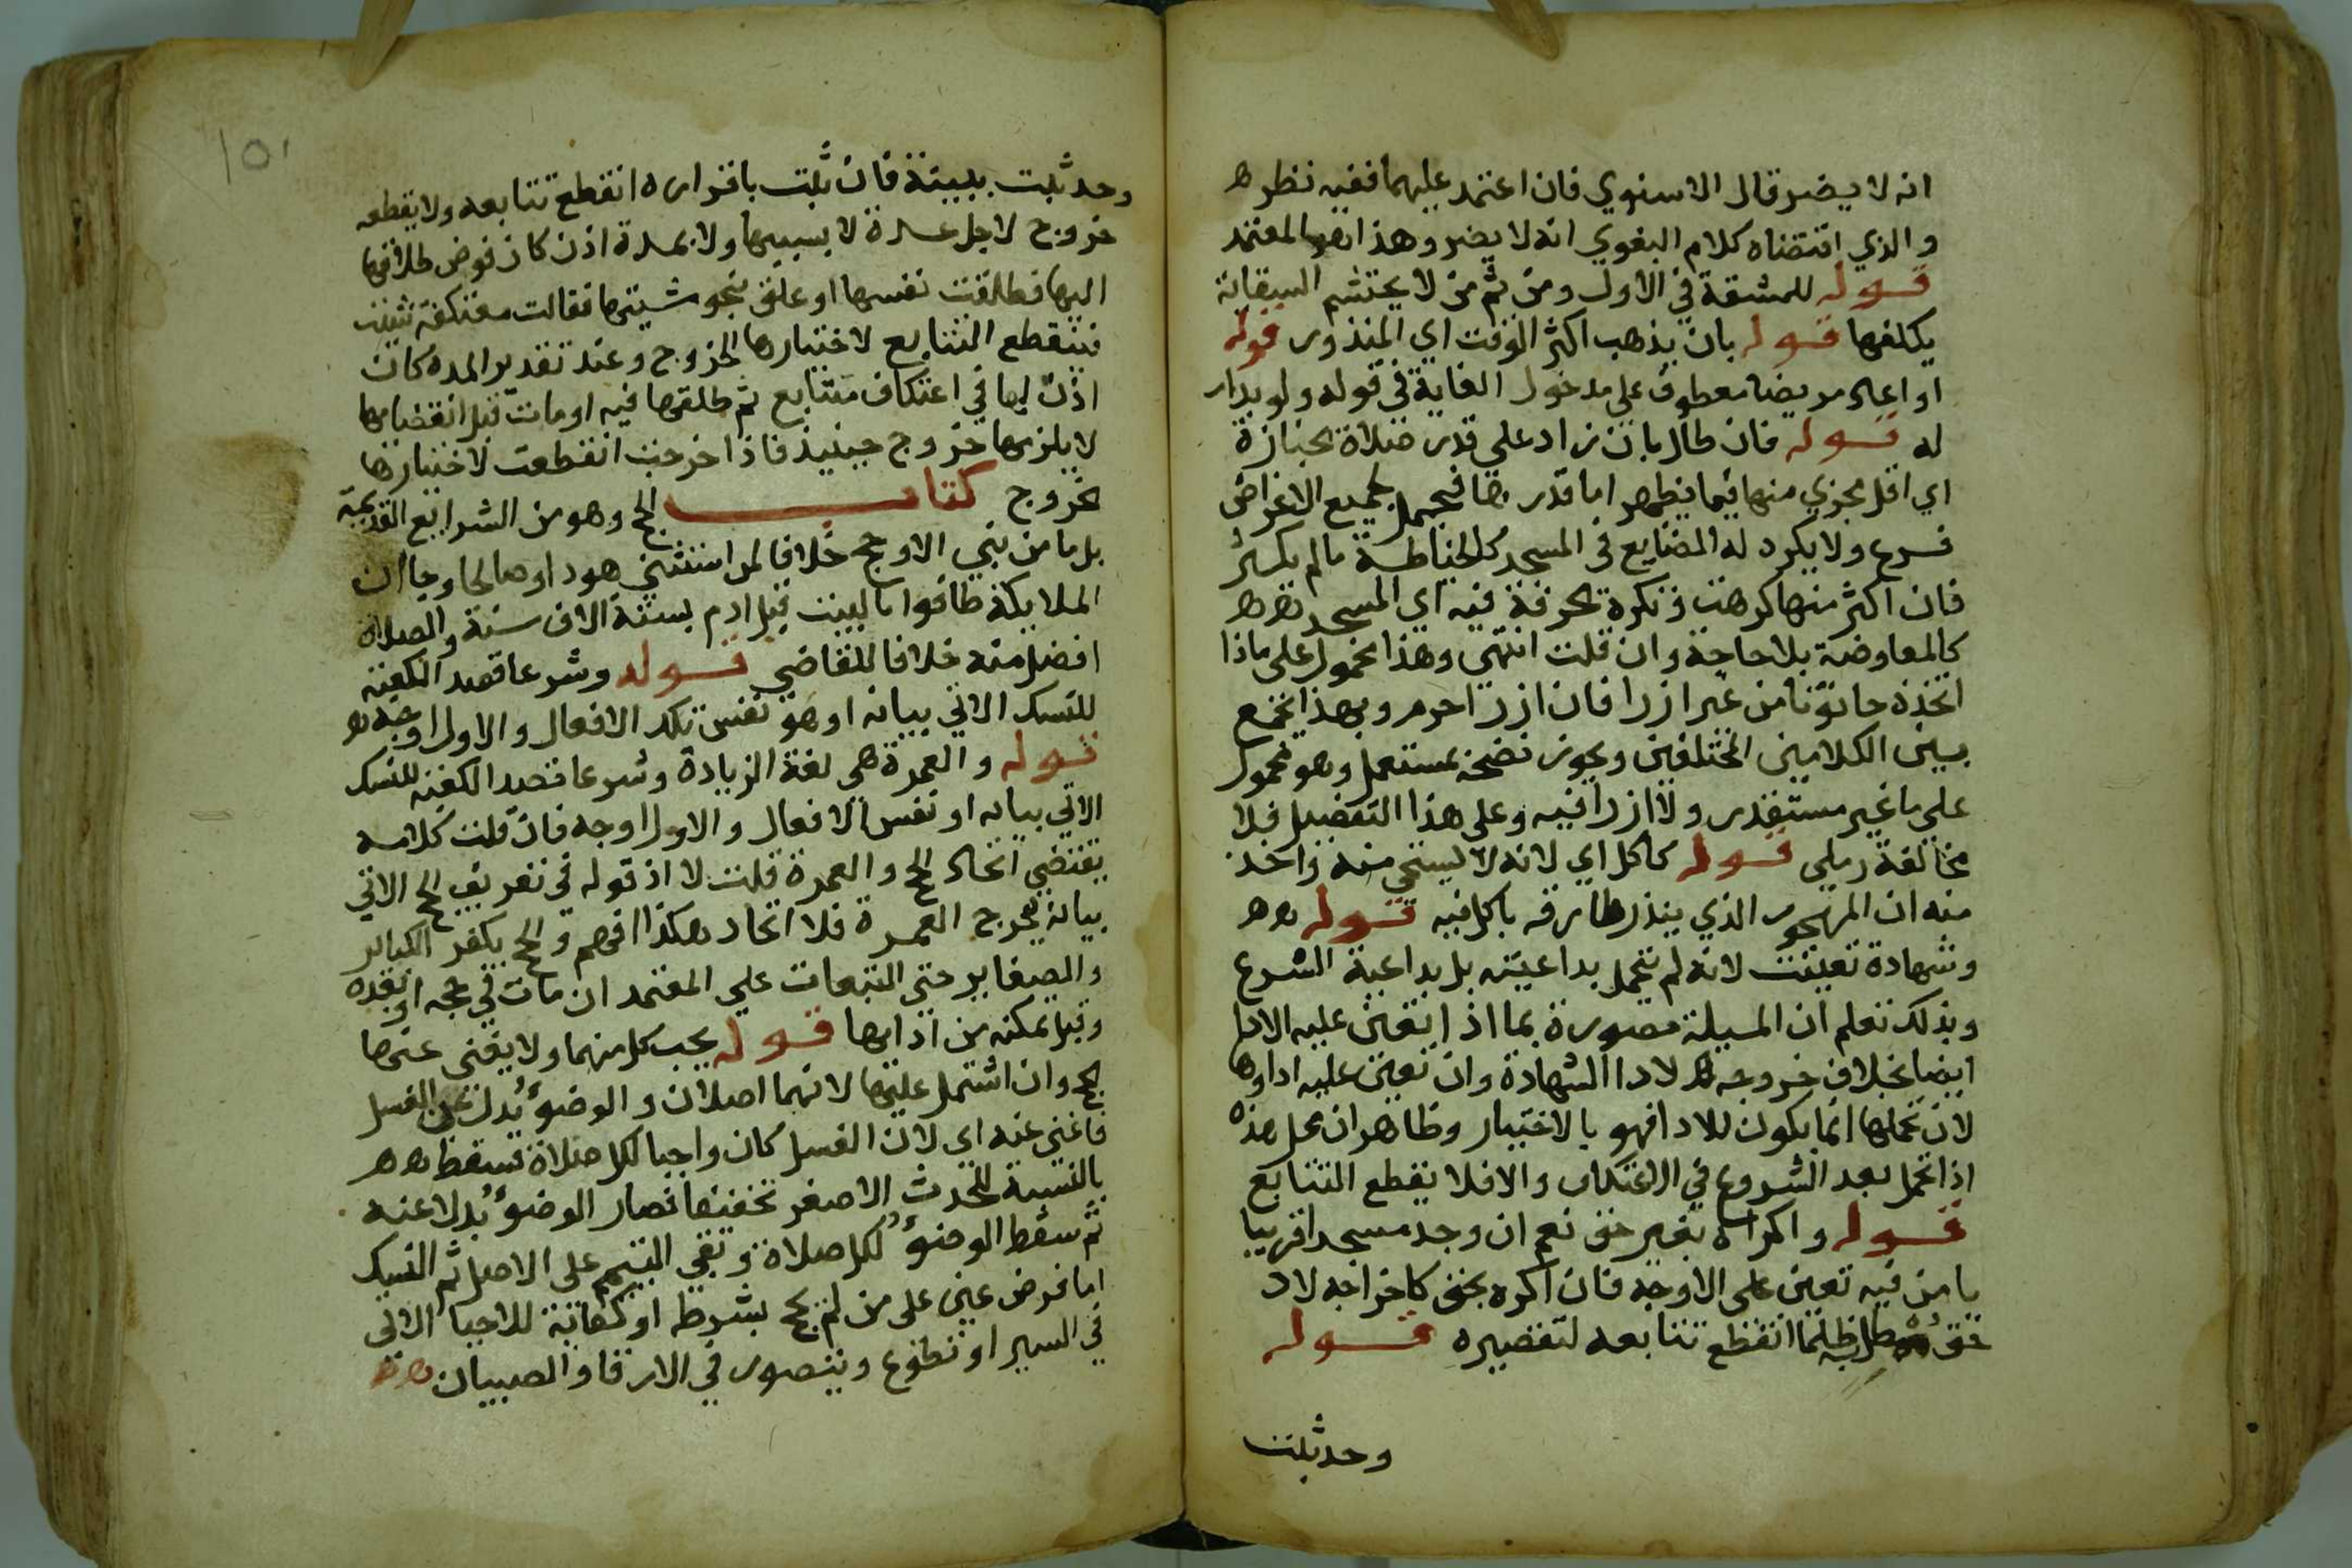 انه لا يضر قال الاسنوي فان اعتمد عليهما ففيه نظر ه
والذي اقتضاه كلام البغوي انه لا يضر وهذا هو المعتمد
قوله للمشقة في الاول ومن ثم من لا يحتشم السقاية
يكلفها قوله بان يذهب اكثر الوقت اي المنذور قوله
او اعاد مريضا معطوف على مدخول الغاية في قوله ولو بدار
له قوله فان طال بان زاد على قدر صلاة الجنازة
اي اقل مجزي منها فيما يظهر اما قدرها فيحمل لجميع الاغراض
فرع ولا يكره له الصنايع في المسجد كالخياطة ما لم يكثر
فان اكثر منها كرهت وتكره الحرفة فيه اي المسجد
كالمعاوضة بلا حاجة وان قلت انتهى وهذا محمول على ما اذا
اتخذه حانوتا من غير ازرا فان ازرا حرم وبهذا يجمع
بين الكلامين المختلفين ويجوز نضحه بمستعمل وهو محمول
على ما غير مستقذر ولا ازرا فيه وعلى هذا التفصيل فلا
مخالفة رملي قوله كاكل اي لانه لا يستحي منه واخذ
منه ان المهجور الذي يندر طارقه ياكل فيه قوله
وشهادة تعينت لانه لم يتحمل بداعيته بل بداعية الشرع
وبذلك تعلم ان المسيلة مصورة بما اذا تعين عليه الادا
ايضا بخلاف خروجه لادا الشهادة وان تعين عليه اداوها
لان تحملها انما يكون للادا فهو بالاختيار وظاهر ان محل هذه
اذا تحمل بعد الشروع في الاعتكاف والا فلا يقطع التتابع
قوله واكراه بغير حق نعم ان وجد مسجدا قريبا
يامن فيه تعين على الاوجه فان اكره بحق كاخراجه لاد
حق مطل به ظلما انقطع تتابعه لتقصيره قوله
وحد ثبت
١٥١
وحد ثبت ببينة فان ثبت باقراره انقطع تتابعه ولا يقطعه
خروج لاجل عدة لا بسببها ولا بمدة اذن كان فوض طلاقها
اليها فطلقت نفسها او علق بنحو مشيتها فقالت معتكفة شئت
فينقطع التتابع لاختيارها الخروج وعند تقدير المدة كان
اذن لها في اعتكاف متتابع ثم طلقها فيه او مات قبل انقضايها
لا يلزمها خروج حينيذ فاذا خرجت انقطعت لاختيارها
الخروج كتاب الحج وهو من الشرايع القديمة
بل ما من نبي الا وحج خلافا لمن استثنى هود او صالحا وجا ان
الملايكة طافوا بالبيت قبل ادم بستة الاف سنة والصلاة
افضل منه خلافا للقاضي قوله وشرعا قصد الكعبة
للنسك الاتي بيانه او هو نفس تلك الافعال والاول اوجه
قوله والعمرة هي لغة الزيادة وشرعا قصد الكعبة للنسك
الاتي بيانه او نفس الافعال والاول اوجه فان قلت كلامه
يقتضي اتحاد الحج والعمرة قلت لا اذ قوله في تعريف الحج الاتي
بيانه يخرج العمرة فلا اتحاد هكذا افهم والحج يكفر الكباير
والصغاير حتى التبعات على المعتمد ان مات في حجه او بعده
وقبل تمكنه من ادايها قوله يجب كل منهما ولا يغني عنها
الحج وان اشتمل عليها لانهما اصلان والوضوء بدل عن الغسل
فاغنى عنه اي لان الغسل كان واجبا لكل صلاة فسقط
بالنسبة للحدث الاصغر تخفيفا فصار الوضوء بدلا عنه
ثم سقط الوضوء لكل صلاة وبقي التيمم على الاصل ثم النسك
اما فرض عين على من لم يحج بشرطه او كفاية للاحيا الاتي
في السير او تطوع ويتصور في الارقا والصبيان